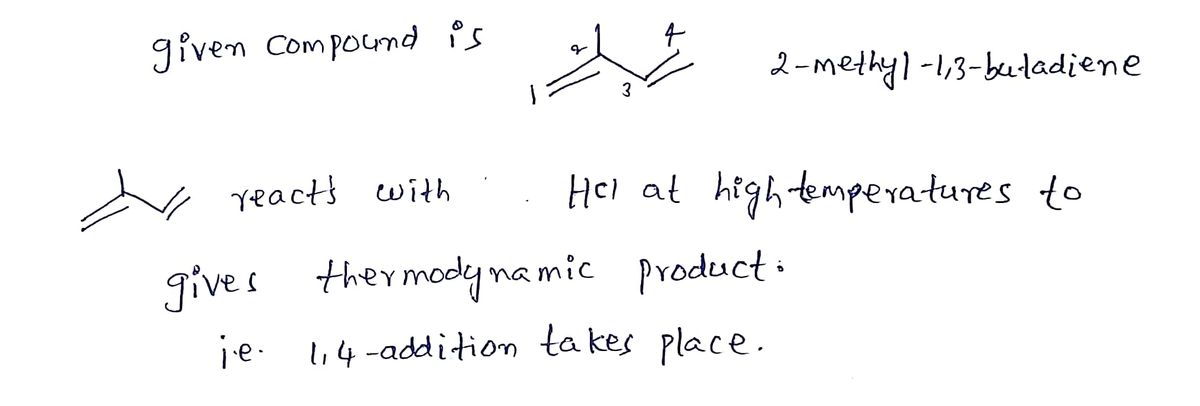 given compound is 1 2 3 4 2-methyl-1,3-butadiene
reacts with . HCl at high temperatures to
gives thermodynamic product.
i.e. 1,4-addition takes place.